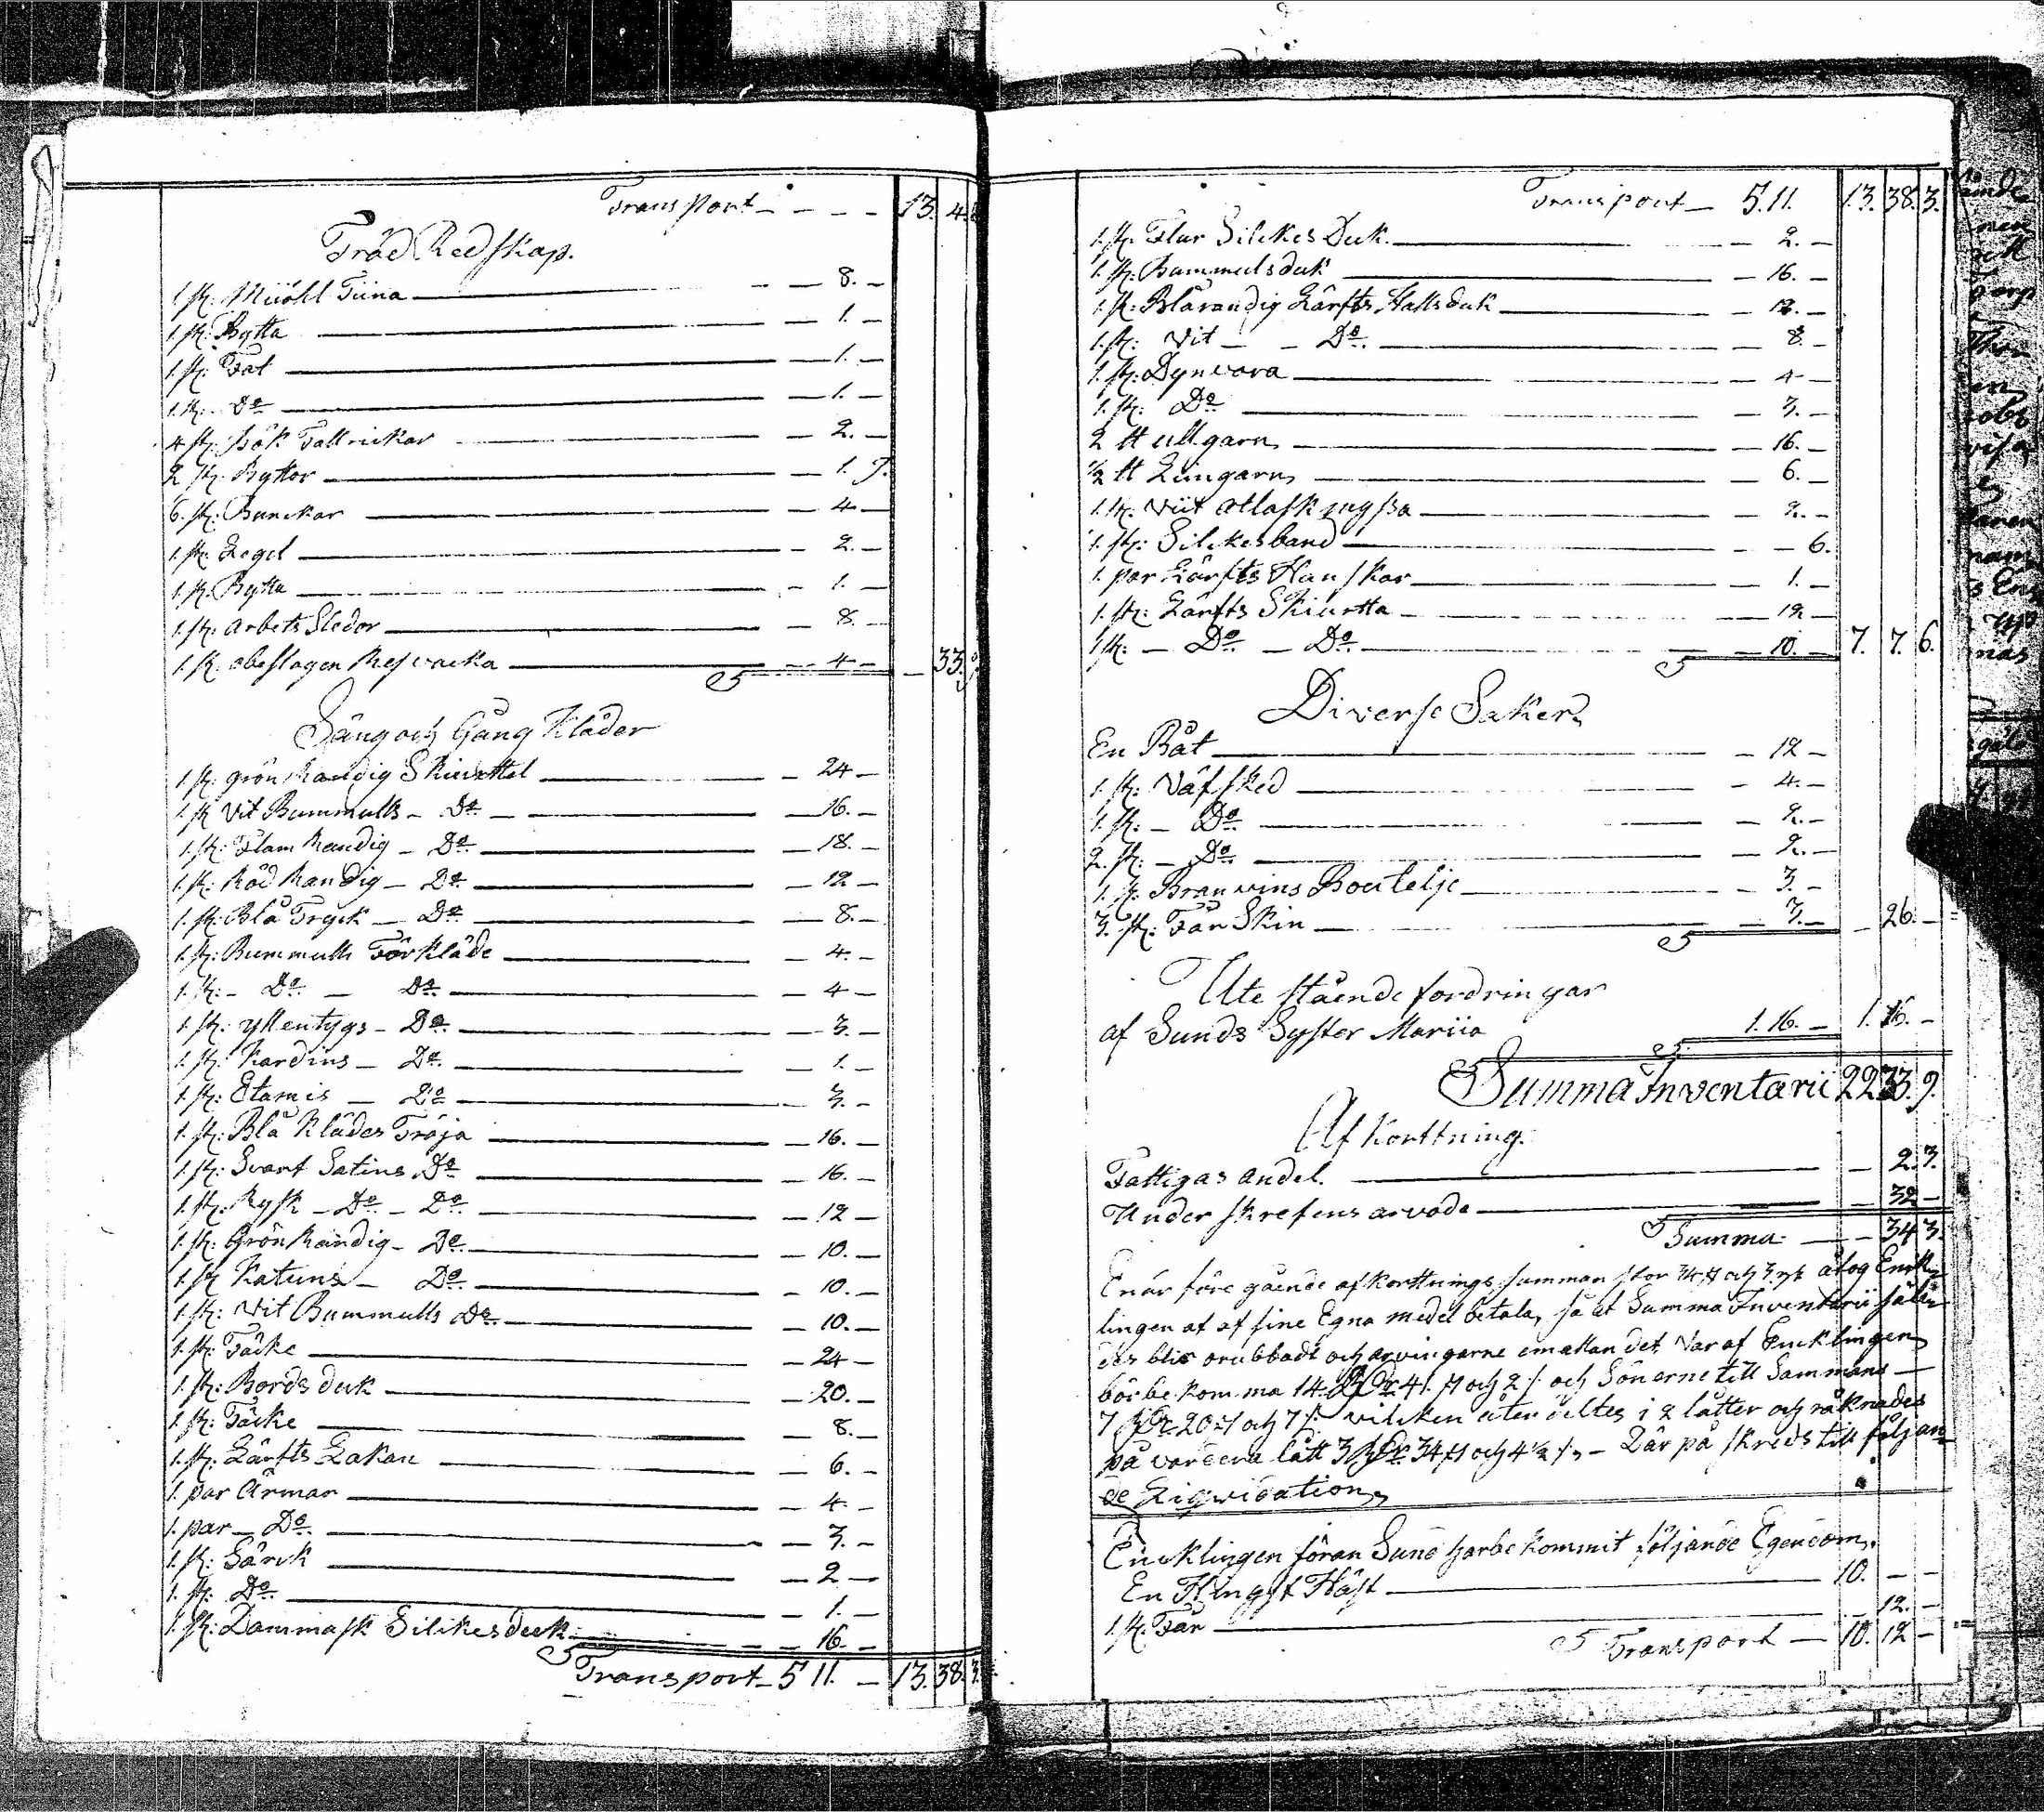 Transport - - - - 13. 4.
Träd Redskap.
1. st: Miöhl Tiina - 8. -
1. st: Bytta - 1. -
1. st: Fat - 1. -
1. st: Do - 1. -
4 st: bök Tallrickar - 2. -
2 st: Byttor - 1.
6. st: Bunckar - 4 -
1. st: Legel - 2. -
1. st: Bytta - 1. -
1. st: arbets Sledor - 8. -
1. st: obeslagen - 4 - - 33.
Säng och Gång Kläder
1. st: grön Randig Skiurttel - 24 -
1. st Vit Bummulls - Do - 16. -
1. st: Flam Randig - Do - 18. -
1. st: Röd Randig - Do - 12 -
1. st: Blå Tryck - Do - 8. -
1. st: Bummulls Förkläde - 4. -
1. st: - Do - Do - 4 -
1. st: yllentygs - Do - 3. -
1. st: Kardins - Do - 1. -
1. st: Etamis - Do - 3. -
1. st: Blå Klädes Tröja - 16. -
1. st: Svart Satins Do - 16. -
1. st: Rysk - Do - Do - 12 -
1. st: Grön Randig - Do - 10. -
1. st Katuns - Do - 10. -
1. st: Vit Bummulls Do - 10. -
1. st: Täcke - 24 -
1. st: Bords duk - 20. -
1. st: Täcke - 8. -
1. st: Lärfts Lakan - 6. -
1. par Ärmar - 4. -
1. par - Do - 3. -
1. st: Särck - 2 -
1. st: Do - 1. -
1. st: Dammask Silckes duk - 16. -
Transport - 5 11. - 13. 38. 3.
Transport - 5. 11. 13. 38. 3.
1. st: Flor Silckes Duk. - 2. -
1. st: Bummulsduk - 16. -
1. st: Blårandig Lärfts Hallsduk - 12. -
1. st: Vit - Do - 8. -
1. st: Dynvara - 4 -
1. st: Do - 3. -
2 ℔ ullgarn - 16. -
½ ℔ Lingarn - 6. -
1. st: Viit Atlask myssa - 2. -
1. st: Silckesband - 6.
1. par Lärfts Hanskar - 1. -
1. st: Lärfts Skiurtta - 12 -
1 st: - Do - Do - 10. - 7. 7. 6.
Diverse Saker
En Båt - 12 -
1. st: Väfsked - 4. -
1. st: - Do - 2. -
2. st: - Do - 2. -
1. st Branvins Boutelje - 3. -
3. st: Får Skin - 3. - - 26. -
Ute stående fordringar
af Sunds Syster Mariia 1. 16. - 1. 16. -
Summa Inventarii 22 33. 9.
Af Korttning.
Fattigas andel. - 2. 3.
Under skrefens arvode - 32 -
Summa - 34 3.
Enär före gående afkorttnings summan stor 34 s och 3 rst åtog Enck
lingen at af sine Egna medel betala, så at Summa Inventarii
des blir orubbadt och arvingarne emellan det Var af Encklingen
bör bekomma 14 Rdr 41. s och 2 /. och Sönerne till Sammans -
7 Rdr 20 s och 7 /. vilcken åter deltes i 2 låtter och räknades
på vardera lått 3 Rdr 34 s och 4 ½ /. - Där på skreds till följan
de Liqwidation
Encklingen föran Sund har bekommit följande Egendom.
En Hingst Häst - 10. - -
1. st: Får - 12. -
Transport - 10. 12 -